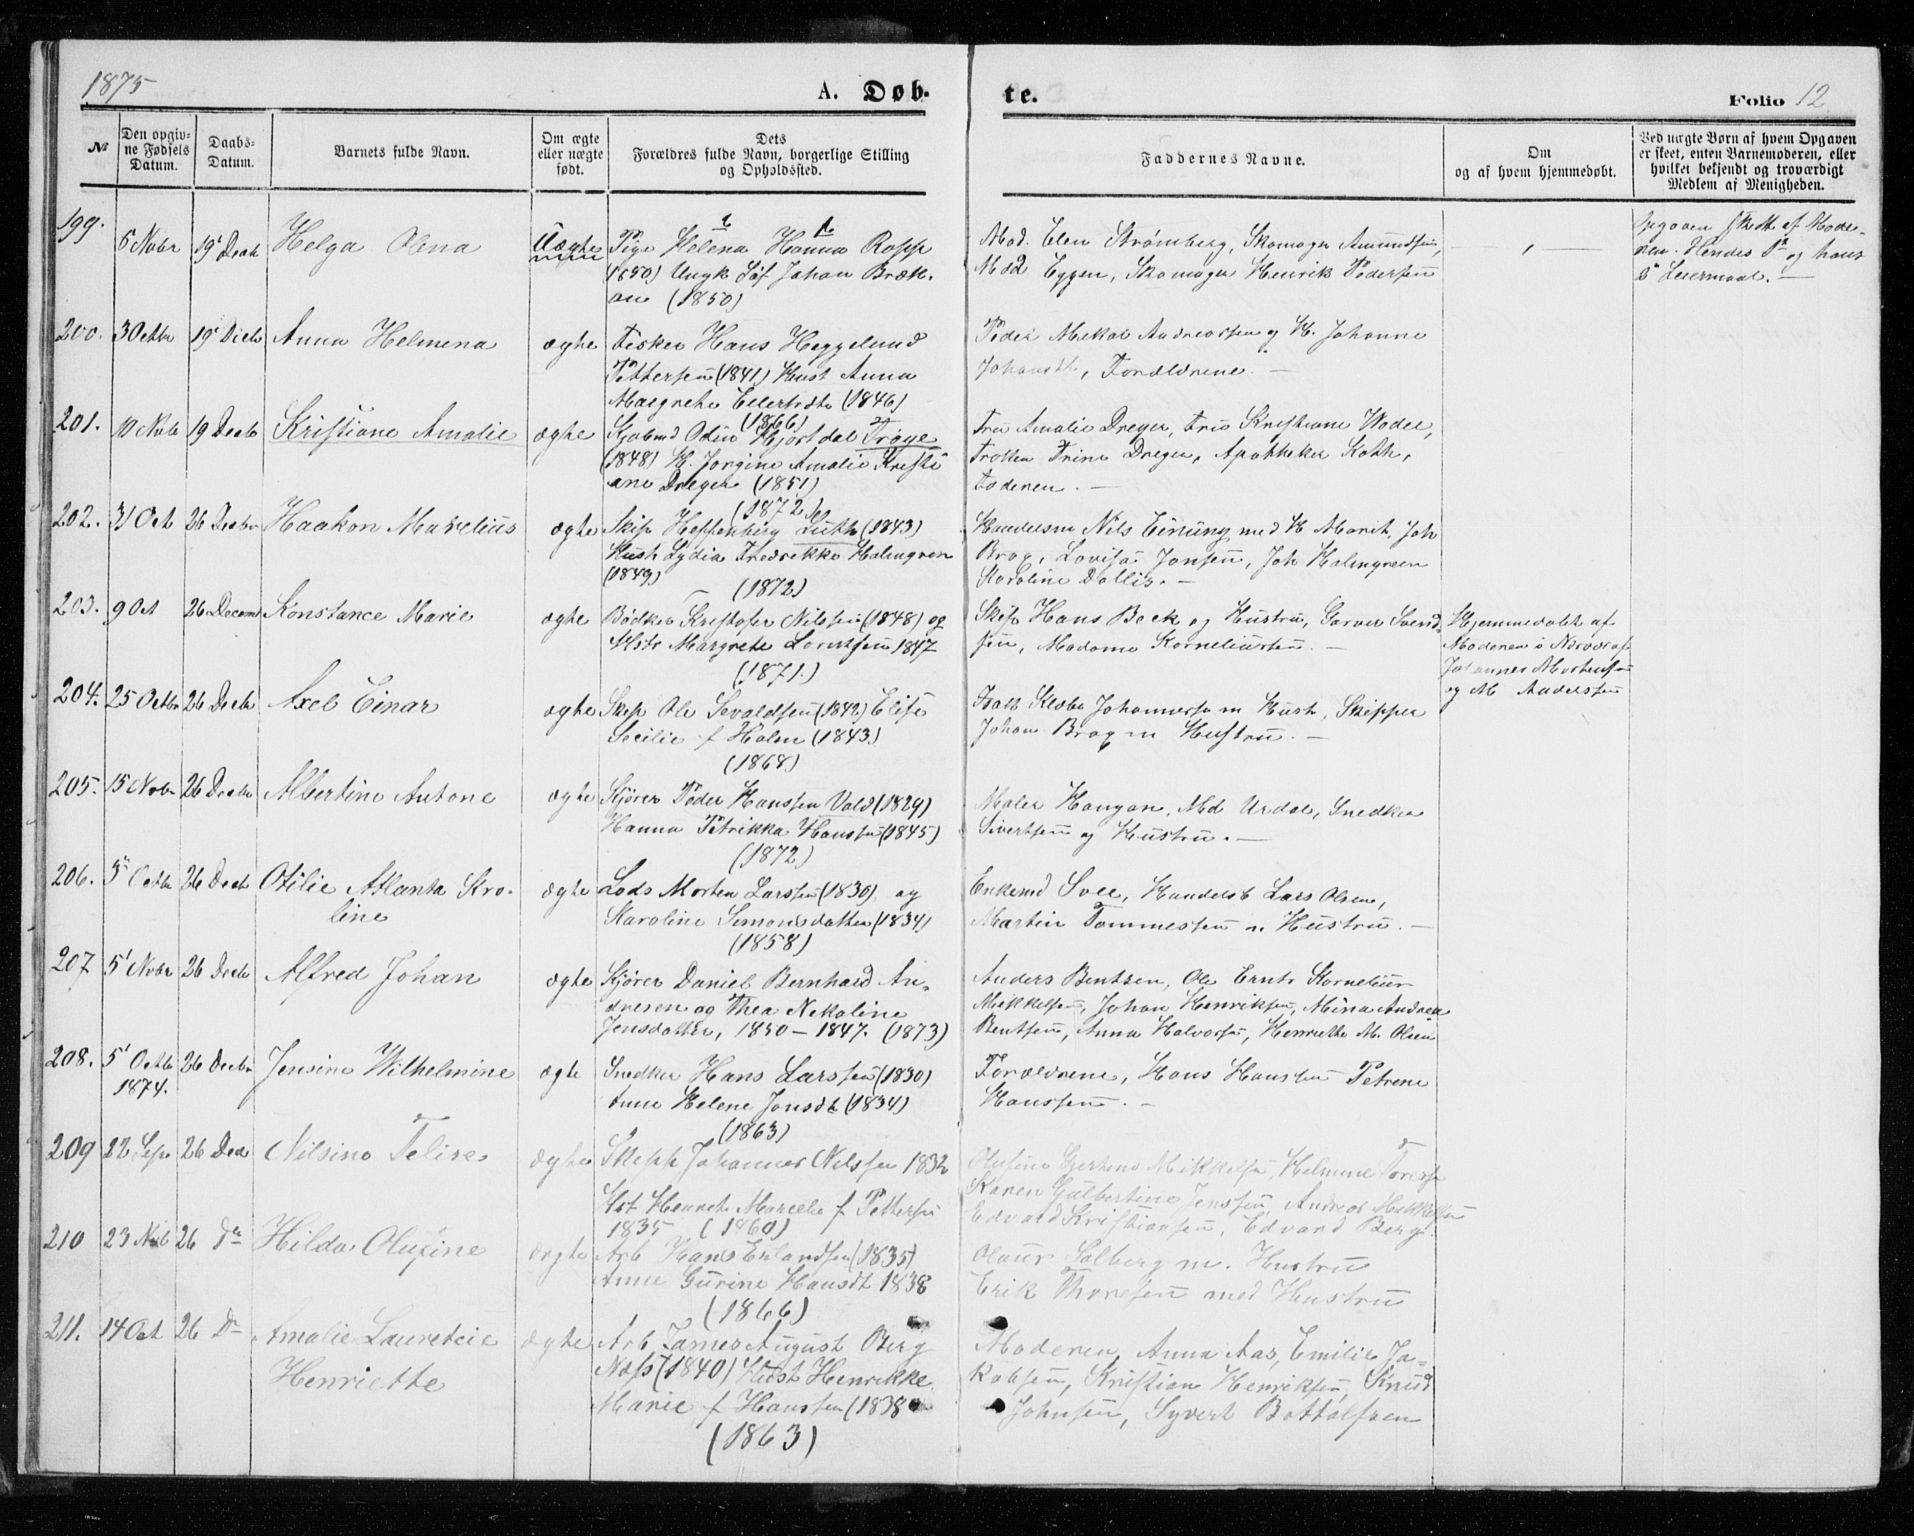 1875
A. Døb-
te.
Folio 12
№
Den opgivne Fødsels Datum.
Daabs-Datum.
Barnets fulde Navn.
Om ægte eller uægte født.
Dets Forældres fulde Navn, borgerlige Stilling og Opholdssted.
Faddernes Navne.
Om og af hvem hjemmedøbt.
Ved uægte Børn af hvem Opgaven er skeet, enten Barnemoderen, eller hvilket bekjendt og troværdigt Medlem af Menigheden.
199. 6 Novbr 19 Decbr Helga Olena Uægte
Pige Helena Hanna Rapp
(1850) Ungk Søf Johan Bræk-
an (1850)
Mad. Elen Strømberg, Skomager Amundsen,
Mad Eggen, Skomager Henrik Pedersen
Opgaven skedt af Mode-
ren. Hendes 1ste og hans
Leiermaal. —
200. 3 Octbr 19 Decbr Anna Helmena ægte
Fisker Hans Heggelund
Pettersen (1841) Hust Anna
Margrethe Eilertsdtr (1846)
(1866)
Peder Mikal Andreassen og H. Johanne
Johansdtr, Forældrene. —
201. 10 Novbr 19 Decbr Kristiane Amalie ægte
Kjøbmd Odin Hjortdal Trøye
(1848) H. Jorgine Amalie Kristi
ane Dreyer (1851)
(1872)
Fru Amalie Dreyer, Fru Kristiane Wadel,
Frøken Trine Dreyer, Apotheker Koth,
Faderen. —
202. 31 Oct 26 Decbr Haakon Marelius ægte
Skip Heffenberg Luth (1843)
Hust Lydia Fredrikke Holmgren
(1849) (1872)
Handelsm Nils Einung med H Marit, Joh
Brox, Lovisa Jonsen, Joh Holmgreen
Karoline Dallis. —
203. 9 Oct 26 Decemb Konstance Marie ægte
Bødker Kristofer Nilssen (1848) og
Hstr Margrete Lorntsen 1847
(1871.)
Skip Hans Beck og Hustru, Garver Svend
sen, Madame Korneliussen. —
Hjemmedøbt af
Moderen i Nærvær af
Johannes Mortensen
og M Anderssen
204. 25 Octbr 26 Decbr Axel Einar ægte
Skip Ole Sevaldsen (1842) Elise
Secilie f Holm (1843)
(1868)
Johannesen m Hust, Skipper
Johan Brox m Hustru. —
205. 15 Novbr 26 Decbr Albertine Antone ægte
Kjører Peder Hanssen Vold (1829)
Hanna Petrikka Hanssen (1845)
(1872)
Maler Haugan, Md Urdal, Snedker
Sivertsen og Hustru. —
206. 3 Octbr 26 Decbr Otilie Atlanta Kro-
line ægte
Lods Morten Larssen (1830) og
Karoline Simonsdatter (1834)
(1858)
Enkemd Svee, Handelsb Lars Olsen,
Martin Tommessen m Hustru. —
207 5 Novbr 26 Decbr Alfred Johan ægte
Kjører Daniel Bernhard An-
dresen og Thea Nikoline
Jensdatter, 1850 — 1847. (1873)
Anders Bentzen, Ole Ernts Kornelius
Mikkelsen, Johan Henriksen, Mina Andrea
Bentsen, Anna Halvorsen, Henriette M. Olsen
208. 5 Octbr 1874. 26 Decbr Jensine Wilhelmine ægte
Snedker Hans Larssen (1830)
Anne Helene Jonsdt (1834)
(1863)
Forældrene, Hans Hanssen Petrene
Hanssen. —
209 22 Sep 26 Dec Nilsine Felise ægte
Skipp Johannes Nilssen 1832
Hst Henrete Marelie f Pettersen
1835 (1860)
Olufine Gjertine Mikkelsen, Helmine Toresen
Karen Gulbertine Jenssen, Andreas Mikkelsen
Edvard Kristiansen, Edvard Berg.
210 23 Nvb 26 Do Hilda Olufine ægte
Arb Hans Erlandsen (1835)
Anne Gurine Hansdt 1838
(1866)
Olaus Solberg m. Hustru
Erik Thoresen med Hustru
211. 14 Oct 26 Do Amalie Lauretcie
Henriette ægte
Arb James August Berg
Næss (1840) Hust Henrikke
Marie f Hanssen (1838
(1863)
Moderen, Anna Aas, Emilie Ja-
kobsen, Kristian Henriksen, Knud
Johnsen, Syvert Bottolfsen